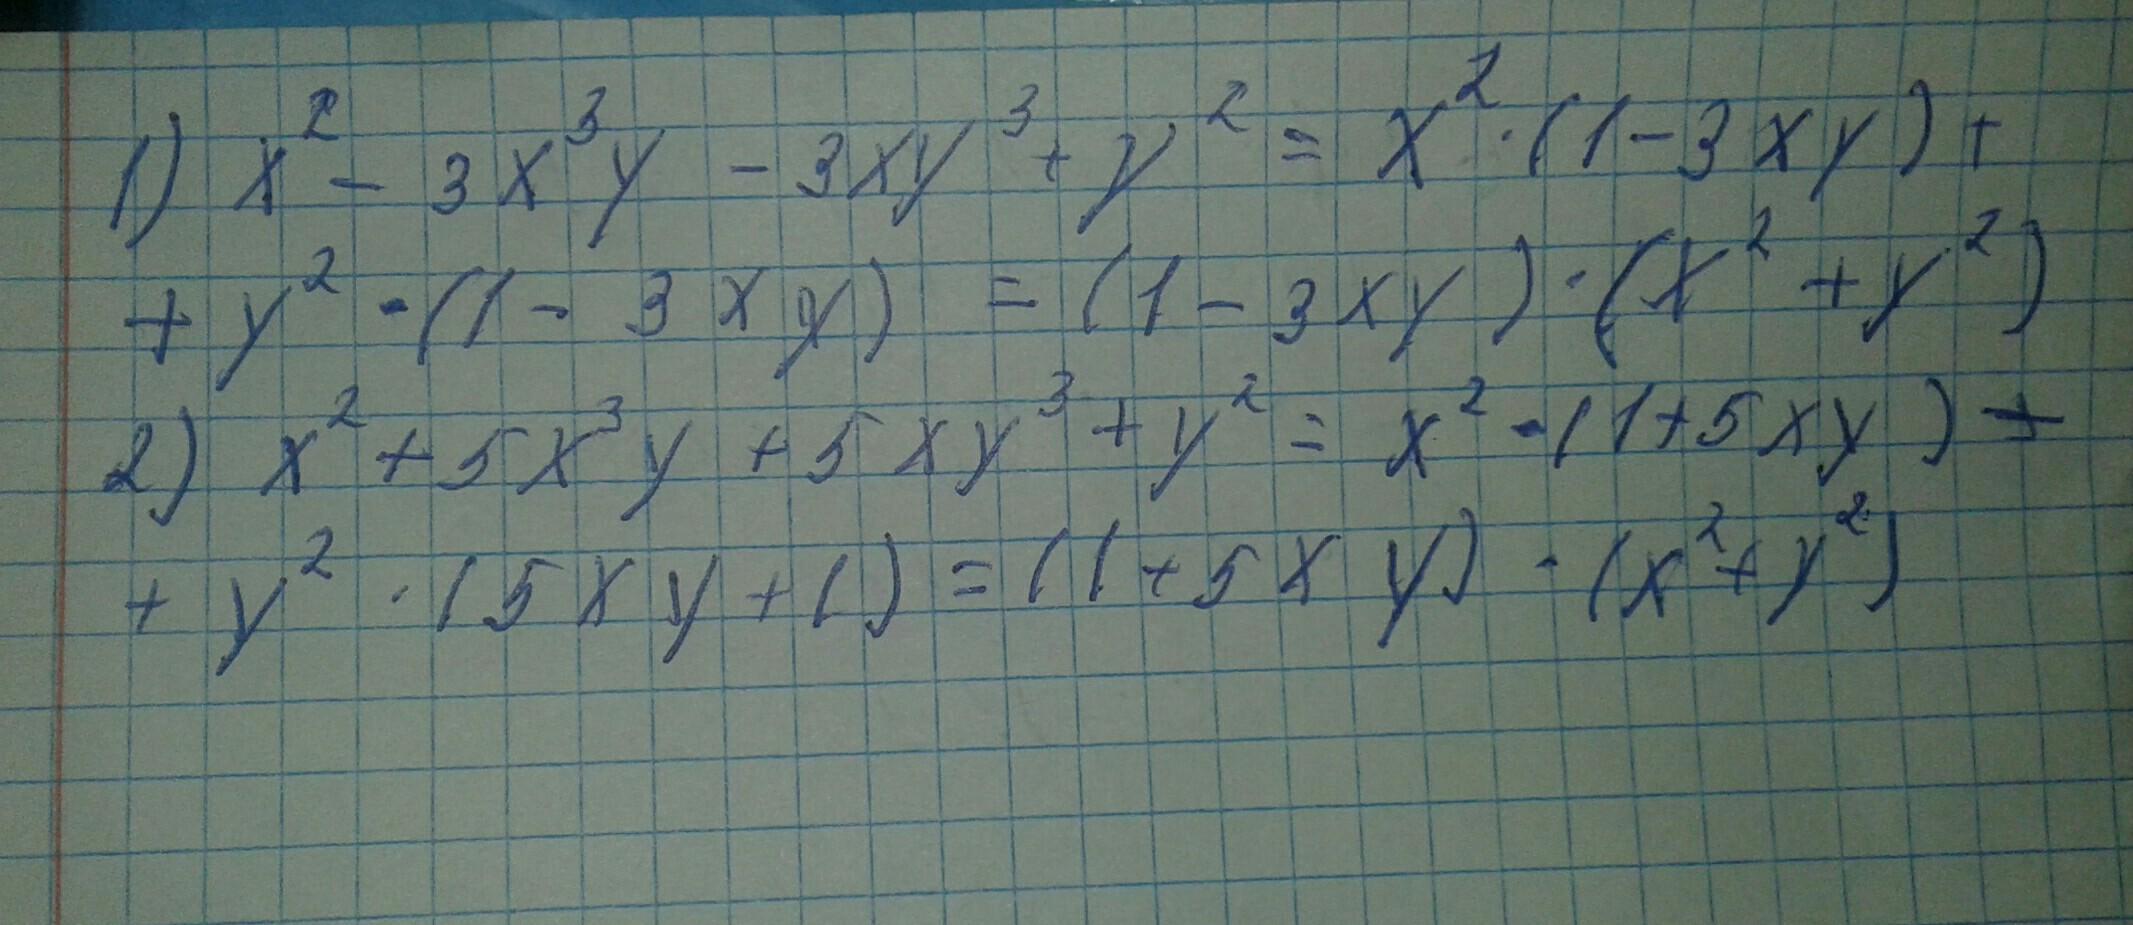 1) x² - 3x³y - 3xy³ + y² = x² · (1 - 3xy) +
+ y² · (1 - 3xy) = (1 - 3xy) · (x² + y²)
2) x² + 5x³y + 5xy³ + y² = x² · (1 + 5xy) +
+ y² · (5xy + 1) = (1 + 5xy) · (x² + y²)